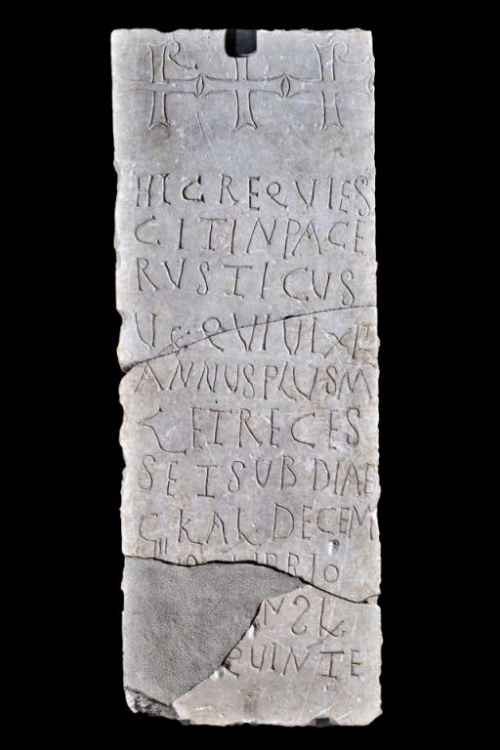 HIC REQVIES
CIT IN PACE
RVSTICVS
QVI VIXI
ANNVS PLVS M
L ET RECES
SEI SUB DIAE
KAL DECEM
BRIO
QUINTE